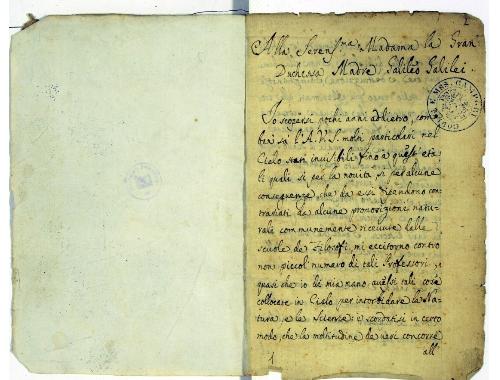 Alla Seren.ma Madama la Gran
Duchessa Madre Galileo Galilei.
Io scopersi pochi anni addietro, com
ben sa l'A. V. S. molti particolari nel
Cielo stati invisibili fino a quest' età,
li quali si per la novita si per alcune
conseguenze, che da essi dependono con
trarianti da alcune proposizione natu-
rale communemente ricevute dalle
scuole de Filosofi, mi eccitorno contro
non piccol numero di tali Professori,
quasi che io di mia mano questi tali cose
collocate in Cielo per intorbidare la Na-
tura, e le Scienze: e scordatisi in certo
modo, che la moltitudine de veri concorre
all'
1